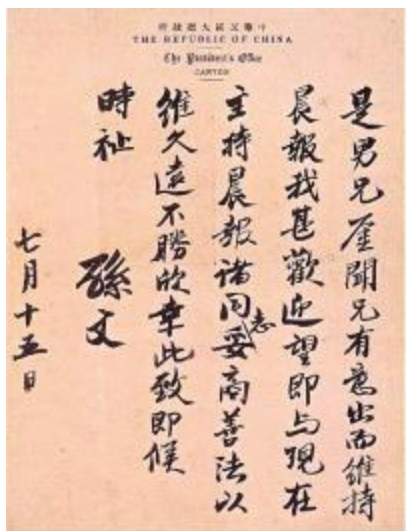 中華民國大總統府
THE REPUBLIC OF CHINA
The President's Office
CANTON
是男兄鑒聞兄有意出而維持
晨報我甚歡迎望即与現在
主持晨報諸同志妥商善法以
維久遠不勝欣幸此致即候
時祉
孫文
七月十五日